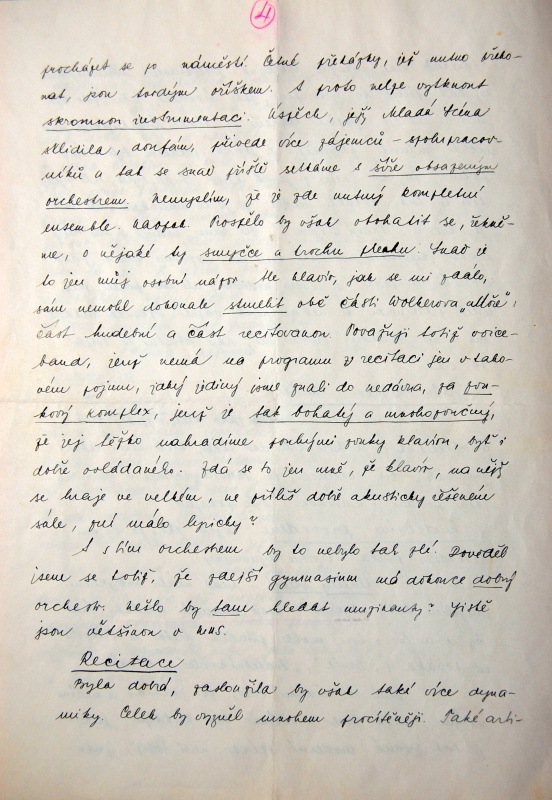 4
procházet se po náměstí. Četné překážky, jež nutno překo-
nat, jsou tvrdým oříškem. A proto nelze vytknout
skromnou instrumentaci. Úspěch, jejž Mladá scéna
sklidila, doufám, přivede více zájemců – spolupracov-
níků a tak se snad příště setkáme s šíře obsazeným
orchestrem. Nemyslím, že je zde nutný kompletní
ensemble. Naopak. Prospělo by však obohatit se, řekně-
me, o nějaké ty smyčce a trochu plechu. Snad je
to jen můj osobní názor. Ale klavír, jak se mi zdálo,
sám nemohl dokonale stmelit obě části Wolkerova „Moře":
část hudební a část recitovanou. Považuji totiž voice-
band, jenž nemá na programu recitaci jen v tako-
vém pojmu, jaký jediný jsme znali do nedávna, za zvu-
kový komplex, jenž je tak bohatý a mnohozvučný,
že jej těžko nahradíme pouhými zvuky klavíru, byť i
dobře ovládaného. Zdá se to jen mně, že klavír, na nějž
se hraje ve velkém, ne příliš dobře akusticky řešeném
sále, zní málo lyricky?
A s tím orchestrem by to nebylo tak zlé. Dověděl
jsem se totiž, že zdejší gymnasium má dokonce dobrý
orchestr. Nešlo by tam hledat muzikanty? Jistě
jsou většinou v ČSM.
Recitace
Byla dobrá, zasloužila by však také více dyna-
miky. Celek by vyzněl mnohem procítěněji. Také arti-